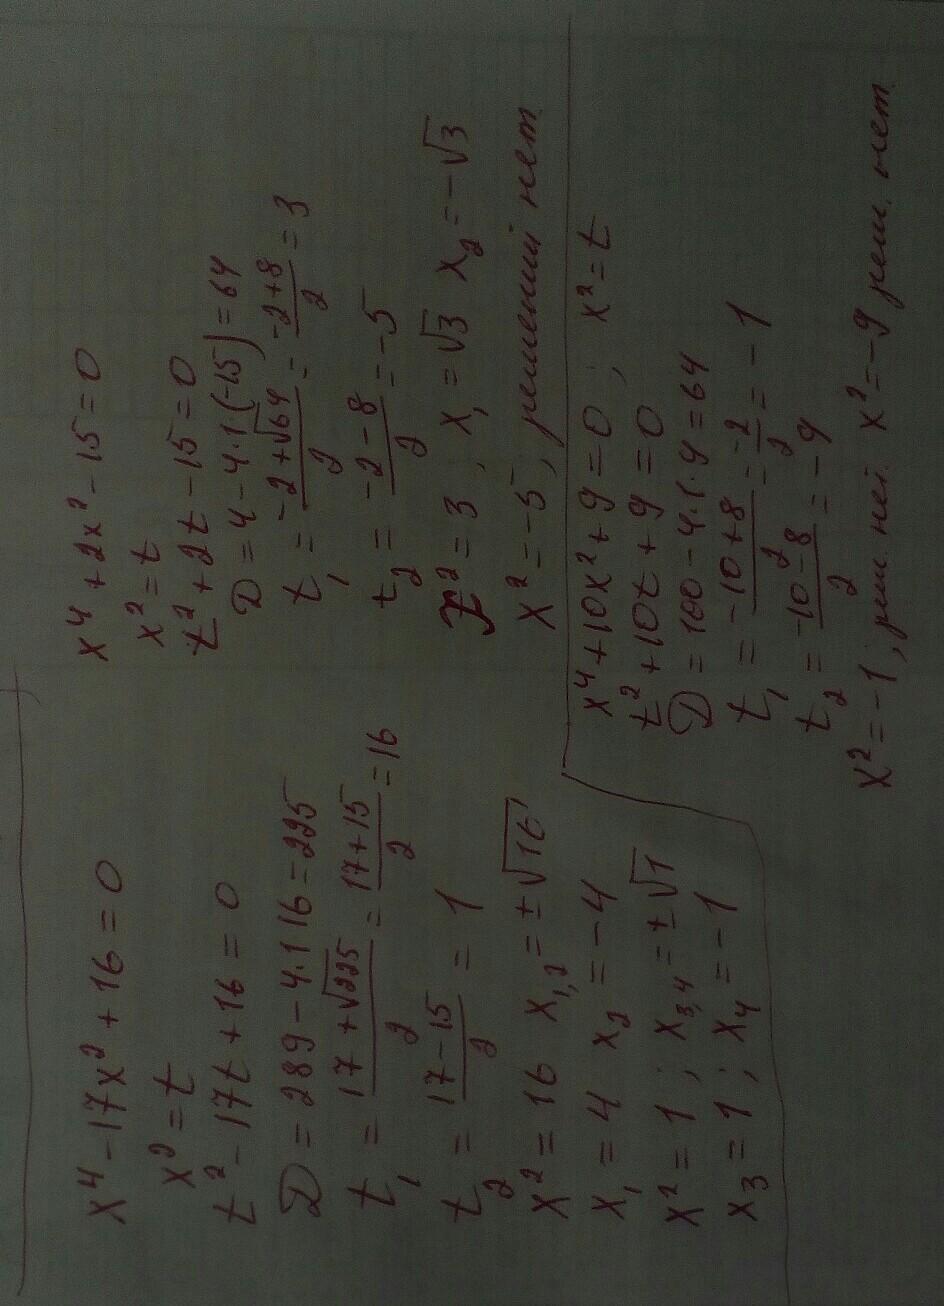 x⁴ - 17x² + 16 = 0
x² = t
t² - 17t + 16 = 0
D = 289 - 4·1 16 = 225
t₁ = (17 + √225)/2 = (17+15)/2 = 16
t₂ = (17-15)/2 = 1
x² = 16 x₁,₂ = ±√16
x₁ = 4 x₂ = -4
x² = 1 ; x₃,₄ = ±√1
x₃ = 1 ; x₄ = -1
x⁴ + 2x² - 15 = 0
x² = t
t² + 2t - 15 = 0
D = 4 - 4·1(-15) = 64
t₁ = (-2+√64)/2 = (-2+8)/2 = 3
t₂ = (-2-8)/2 = -5
x² = 3, x₁ = √3 x₂ = -√3
x² = -5, решений нет
x⁴ + 10x² + 9 = 0 ; x² = t
t² + 10t + 9 = 0
D = 100 - 4·1·9 = 64
t₁ = (-10+8)/2 = -2/2 = -1
t₂ = (-10-8)/2 = -9
x² = -1 ; реш. ней x² = -9 реш. нет